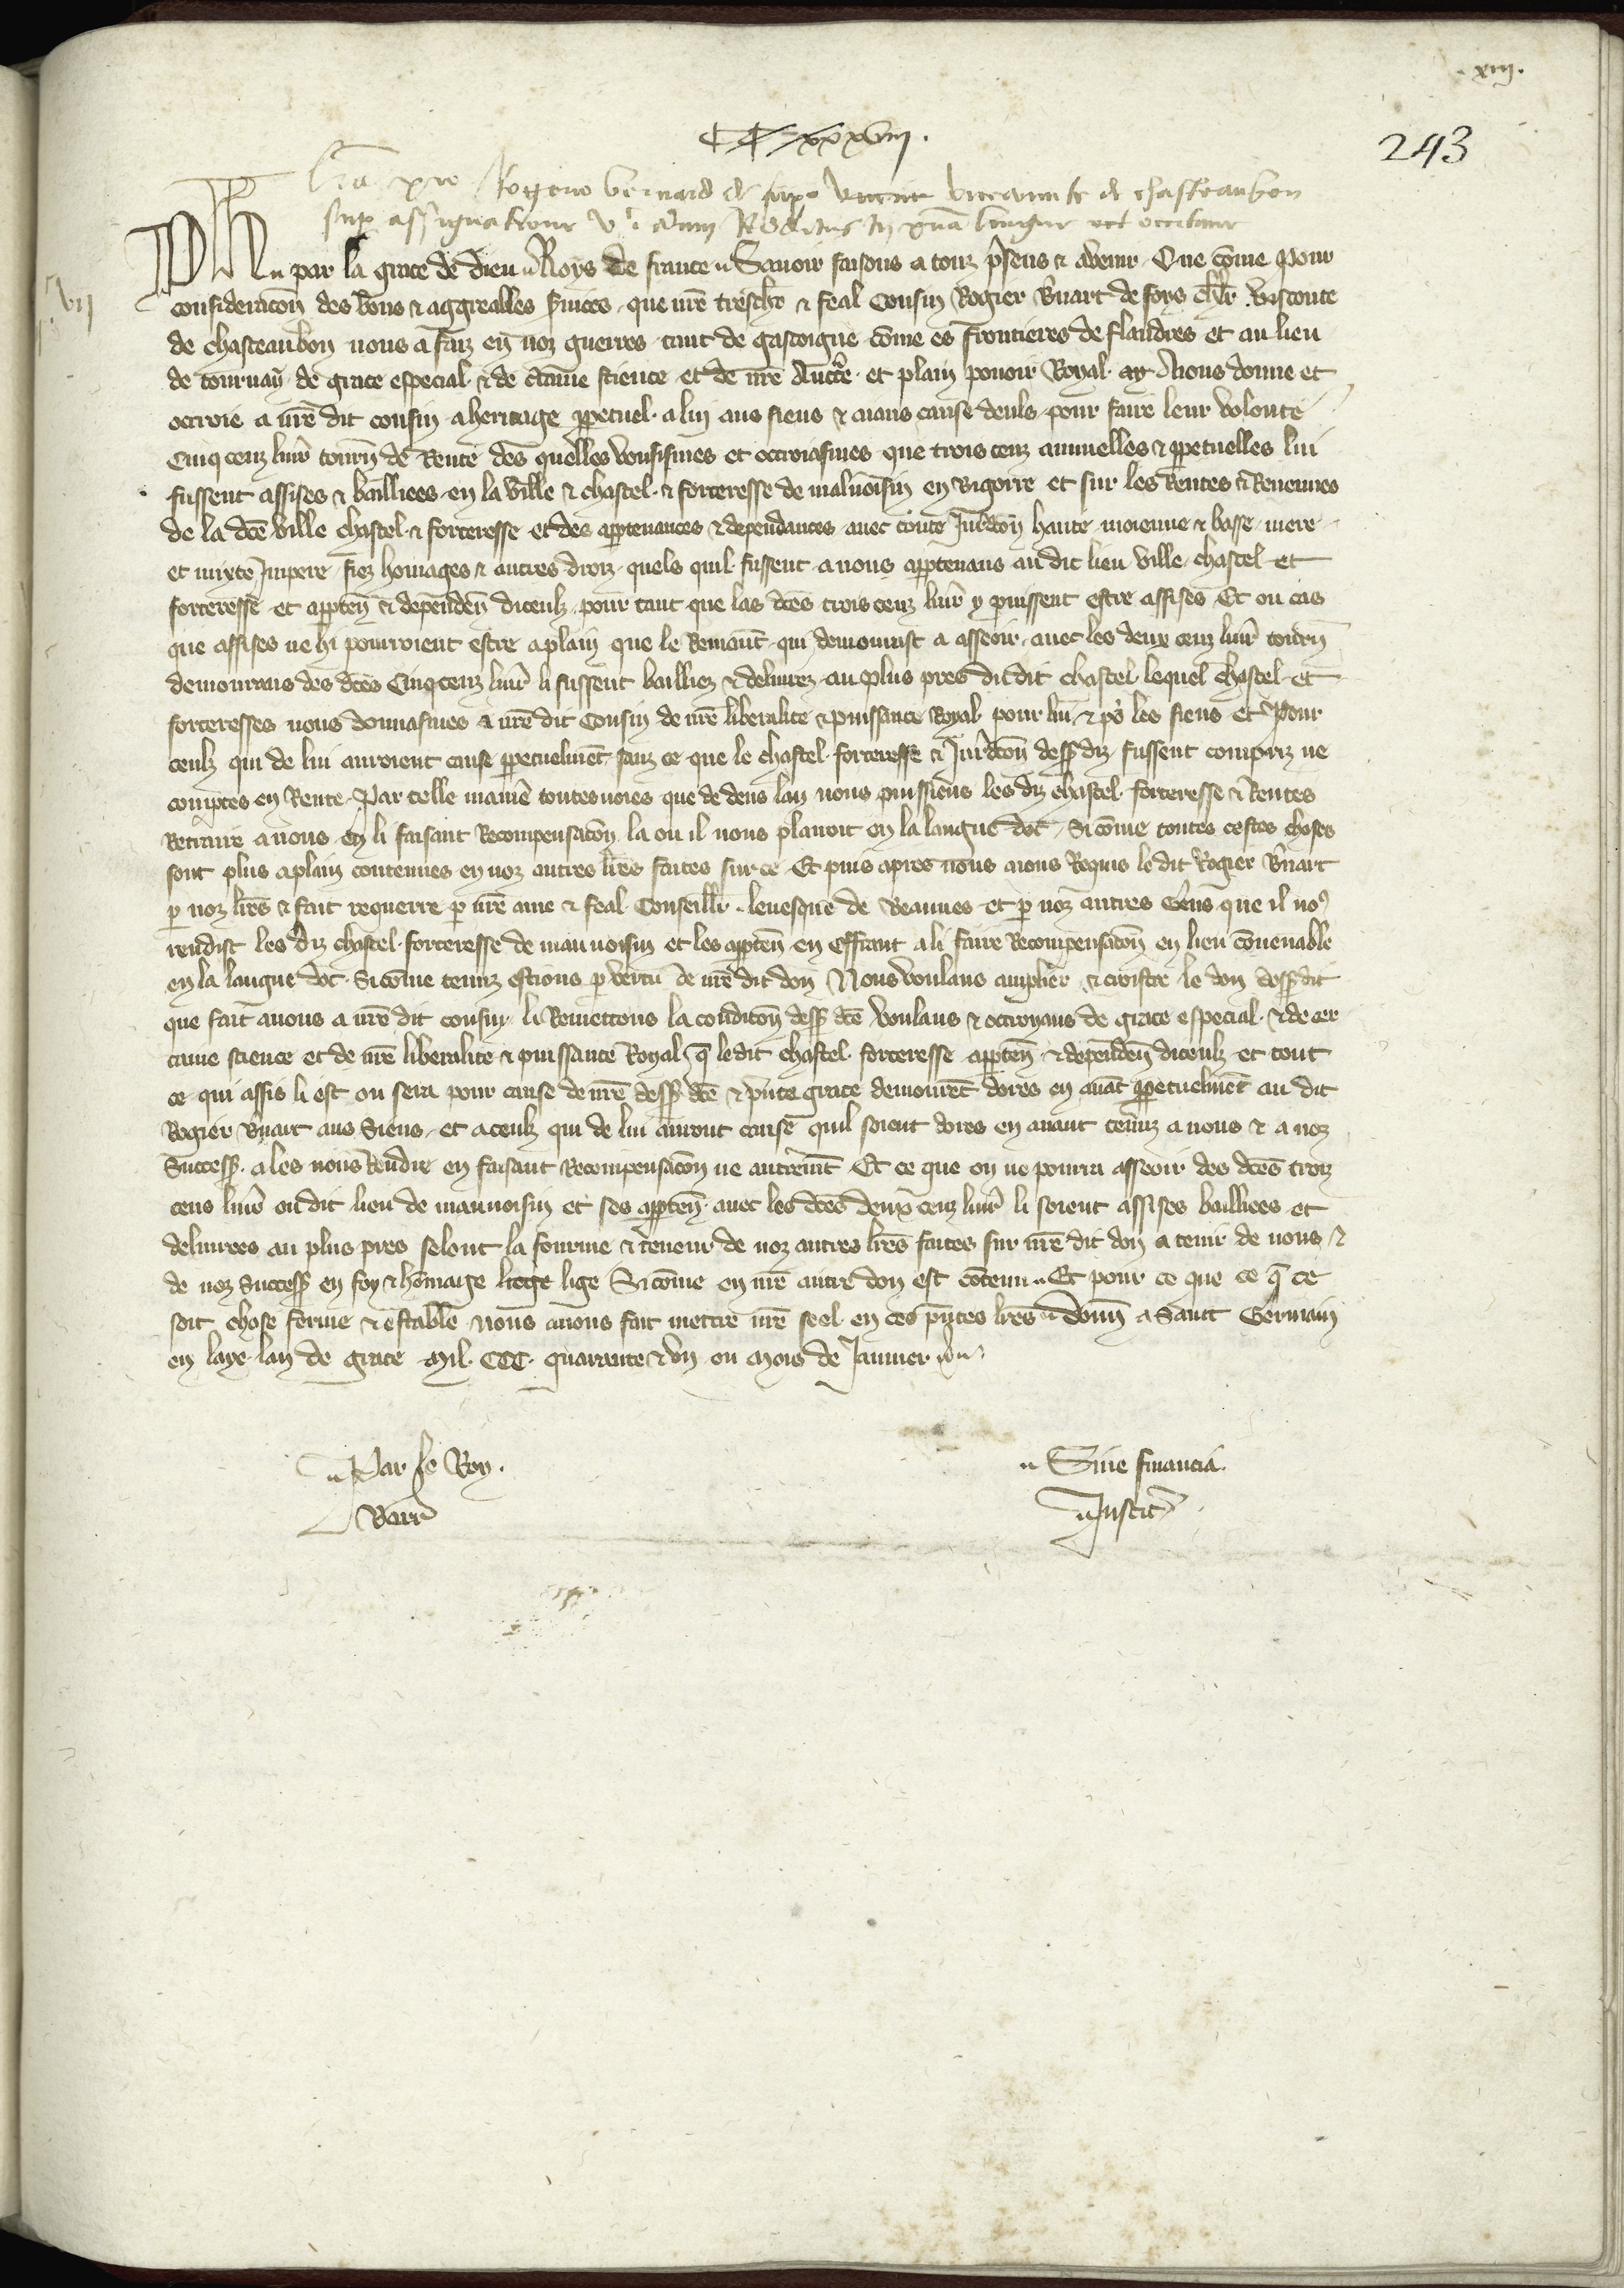 .xiij.
CC xxxviij.
243
Lra pro Rogerio bernard de fuxo vicecomite de chasteaubon
sup assignatione
Ph par la grace de dieu Roys de france Savoir faisons a touz pñsens & avenir Que cõme pour
consideracoñ des bons & aggreables s̃vices que nr̃e treschr̃ & feal Cousin Rogier b̃nart de foys chlr̃ viconte
de chasteaubon nous a faiz en noz guerres tant de gascoigne cõme es frontieres de flandres et au lieu
de tournay de grace especial & de c̃taine science et de nr̃e Auct̃te et plain povoir Royal ay Aions donne et
octroie a nr̃e dit cousin a heritage ꝑpetuel a lui aus siens & aians cause deuls pour faire leur volonte
Cinq cenz livr̃ tourñ de Rente des quelles vousismes et octroiasmes que trois cenz annuelles & ꝑpetuelles lui
fussent assises & bailliees en la ville & chastel & forteresse de malvoisin en Bigorre et sur les Rentes & Revenues
de la dc̃e ville chastel & forteresse et des apꝑtenances & dependances avec toute Jur̃dcoñ haute moienne & basse mere
et mixte Impere fiez homages & autres droiz quels quil fussent a nous apꝑtenans au dit lieu ville chastel et
forteresse et apꝑteñ & dependeñ diceulz pour tant que las dc̃es trois cenz livr̃ y puissent estre assises Et ou cas
que assises ne hi pourroient estre a plain que le Remanẽt qui demourast a asseoir avec les deux cenz livr̃ tourñ
demourans des dc̃es Cinq cenz livr̃ li fussent bailliez & delivrez au plus pres du dit chastel lequel chastel et
forteresses nous donnasmes a nr̃e dit Cousin de nr̃e liberalite & puissance Royal pour lui & po͛ les siens et Pour
ceulz qui de lui auroient cause ꝑpetuelmẽt sanz ce que le chastel forteresse & Jur̃dcoñ dessꝰdiz fussent compriz ne
comptes en Rente Par telle manie͛ toutesvoies que dedens lan nous puissiens les diz chastel forteresse & Rentes
Retraire a nous en li faisant Recompensacoñ la ou il nous plairoit en la langue doc Si cõme toutes cestes choses
sont plus a plain contenues en noz autres lr̃es faites sur ce Et puis apres nous aions Requis le dit Rogier b̃nart
ꝑ noz lr̃es & fait requerre ꝑ nr̃e ame & feal Conseillr̃ levesque de Beauves et ꝑ noz autres Gens que il noꝰ
rendist les diz chastel forteresse de mauvoisin et les apꝑteñ en offrant a li faire Recompensacoñ en lieu cõvenable
en la langue doc Si cõme tenuz estions ꝑ vertu de nr̃e dit don Nous voulans amplier & croistre le don dessꝰdit
que fait avons a nr̃e dit cousin li Remettons la condicoñ dessꝰ dc̃e voulans & octroyans de grace especial & de cer
taine science et de nr̃e liberalite & puissance Royal q̃ le dit chastel forteresse apꝑteñ & dependeñ diceulz et tout
ce qui assis li est ou sera pour cause de nr̃e dessꝰ dc̃e & p̃nte grace demourẽt dores en avãt ꝑpetuelmẽt au dit
Rogier b̃nart aus Siens et a ceulz qui de lui auront cause quil soient dores en avant tenuz a nous & a noz
Success̃ a les nous Rendre en faisant Recompensacoñ ne autremẽt Et ce que on ne pourra asseoir des dc̃es trois
cens livr̃ ou dit lieu de mauvoisin et ses apꝑteñ avec les dc̃es deux cenz livr̃ li soient assises bailliees et
delivrees au plus pres selont la fourme & teneur de noz autres lr̃es faites sur nr̃e dit don a tenir de nous &
de noz Success̃ en foy & hommaige liege lige Si cõme en nr̃e autre don est cõtenu Et pour ce que ce q̃ ce
soit chose ferme & estable nous avons fait mettre nr̃e seel en ces p̃ntes lr̃es donñ a Saint Germain
en laye lan de grace Mil CCC quarante & un ou Mois de Janvier
Par le Roy.
Barr̃
Sine financia.
Justic̃